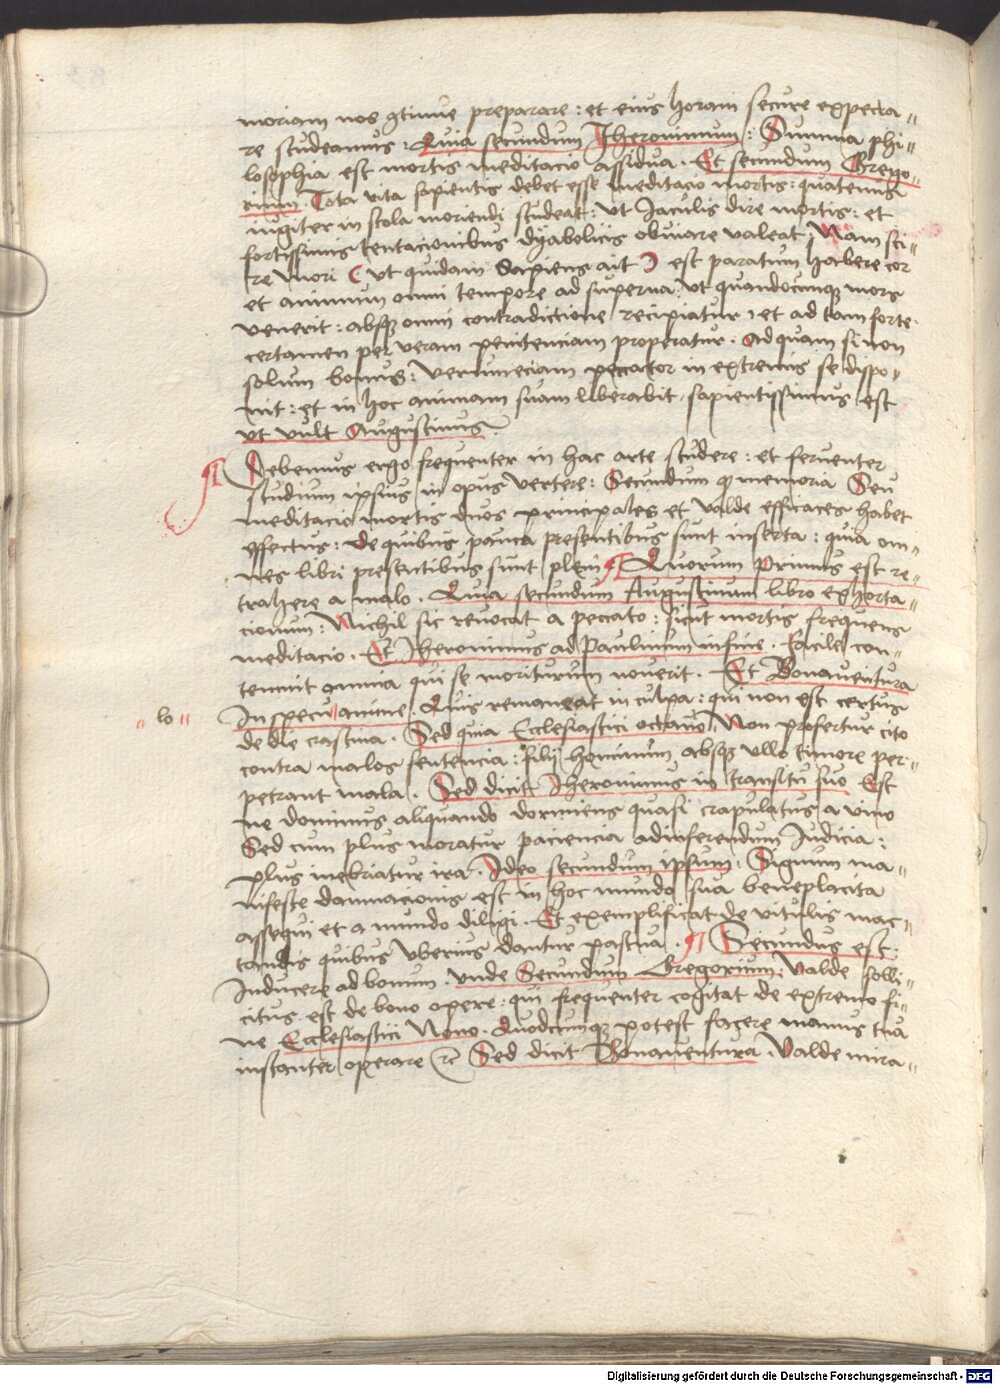 moriam nos ꝯtinue preparare : et eius horam secure expecta〃
re studeamus : Quia secundum Jheronimum : Summa phi〃
losophia est mortis meditacio assidua . Et secundum Grego〃
rium . Tota vita sapientis debet esse meditacio mortis : quatenus
iugiter in scola moriendi studeat : Vt Jaculis dire mortis : et
fortissimis tentacionibus dyabolicis obuiare valeat : Nam sci〃
re mori ( vt quidam Sapiens ait ) est paratum habere cor
et animum omni tempore ad superna : Vt quandocumqꝫ mors
venerit : absqꝫ omni contradictione recipiatur : et ad tam forte
certamen per veram penitenciam properatur . Ad quam si non
solum bonus : verumeciam peccator in extremis se dispo〃
nit : et in hoc animam suam liberabit . sapientissimus est
vt vult Augustinus .
¶ Debemus ergo frequenter in hac arte studere : et feruenter
studium ipsius in opus vertere : Secundum qꝫ memoria Seu
meditacio mortis duos principales et valde efficaces habet
effectus : de quibus pauca presentibus sunt inserta : quia om〃
nes libri presentibus sunt pleni ¶ Quorum Primus est re〃
trahere a malo . Quia secundum Augustinum libro exhorta〃
cionum : Nichil sic reuocat a peccato : sicut mortis frequens
meditacio . Et Jheronimus ad Paulinum in fine . facile con〃
temnit omnia qui se moriturum nouerit . Et Bonauentura
In specu anime . Quis remaneat in culpa : qui non est certus
〃 lo 〃
de die crastina . Sed quia Ecclesiastici octauo Non profertur cito
contra malos sentencia : filij hominum absqꝫ vllo timore per〃
petrant mala . Sed dicit Jheronimus in transitu suo Est
ne dominus aliquando dormiens quasi crapulatus a vino
Sed cum plus moratur paciencia ad inferendum Judicia :
plus inebriatur ira . Ideo secundum ipsum : Signum ma〃
nifeste damnacionis est in hoc mundo sua beneplacita
assequi et a mundo diligi . Et exemplificat de vitulis mac〃
tandis quibus vberius dantur pascua . ¶ Secundus est :
Inducere ad bonum . vnde Secundum Gregorium : Valde solli〃
citus est de bono opere : qui frequenter cogitat de extremo fi〃
ne Ecclesiastici Nono . Quodcumqꝫ potest facere manus tua
instanter operare ꝛc Sed dicit Bonauentura . Valde mira〃
Digitalisierung gefördert durch die Deutsche Forschungsgemeinschaft - DFG